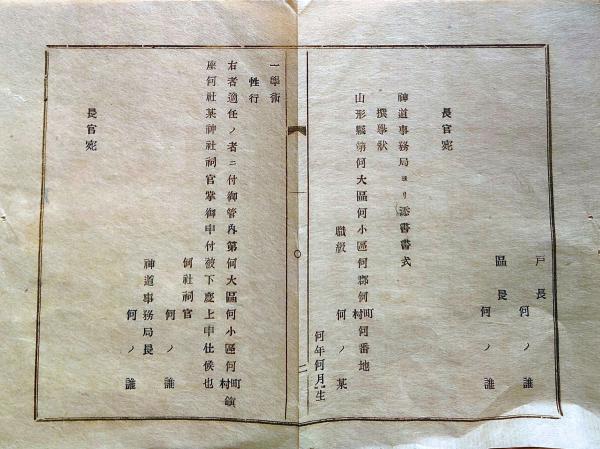 戸長 何ノ誰
區長 何ノ誰
長官宛
神道事務局ヨリ添書書式
撰擧狀
山形縣第何大區何小區何郡何町村何番地
職級 何ノ某
何年何月生
二
一學術
性行
右者適任ノ者ニ付御管內第何大區何小區何町村鎭
座何社某神社祠官掌御申付被下度上申仕候也
何社祠官
何ノ誰
神道事務局長
何ノ誰
長官宛